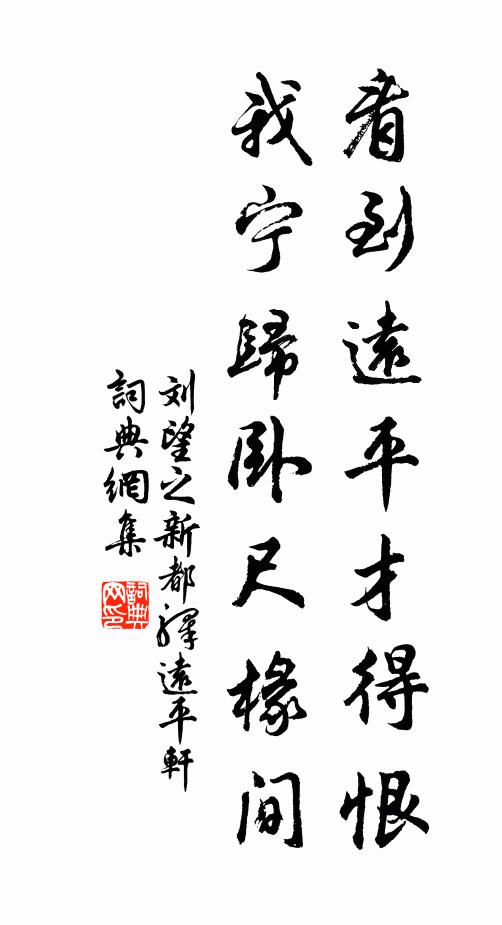 看到遠平才得恨
我宁歸卧尺椽間
刘望之新都驛遠平軒
詞典網集
詞典网印